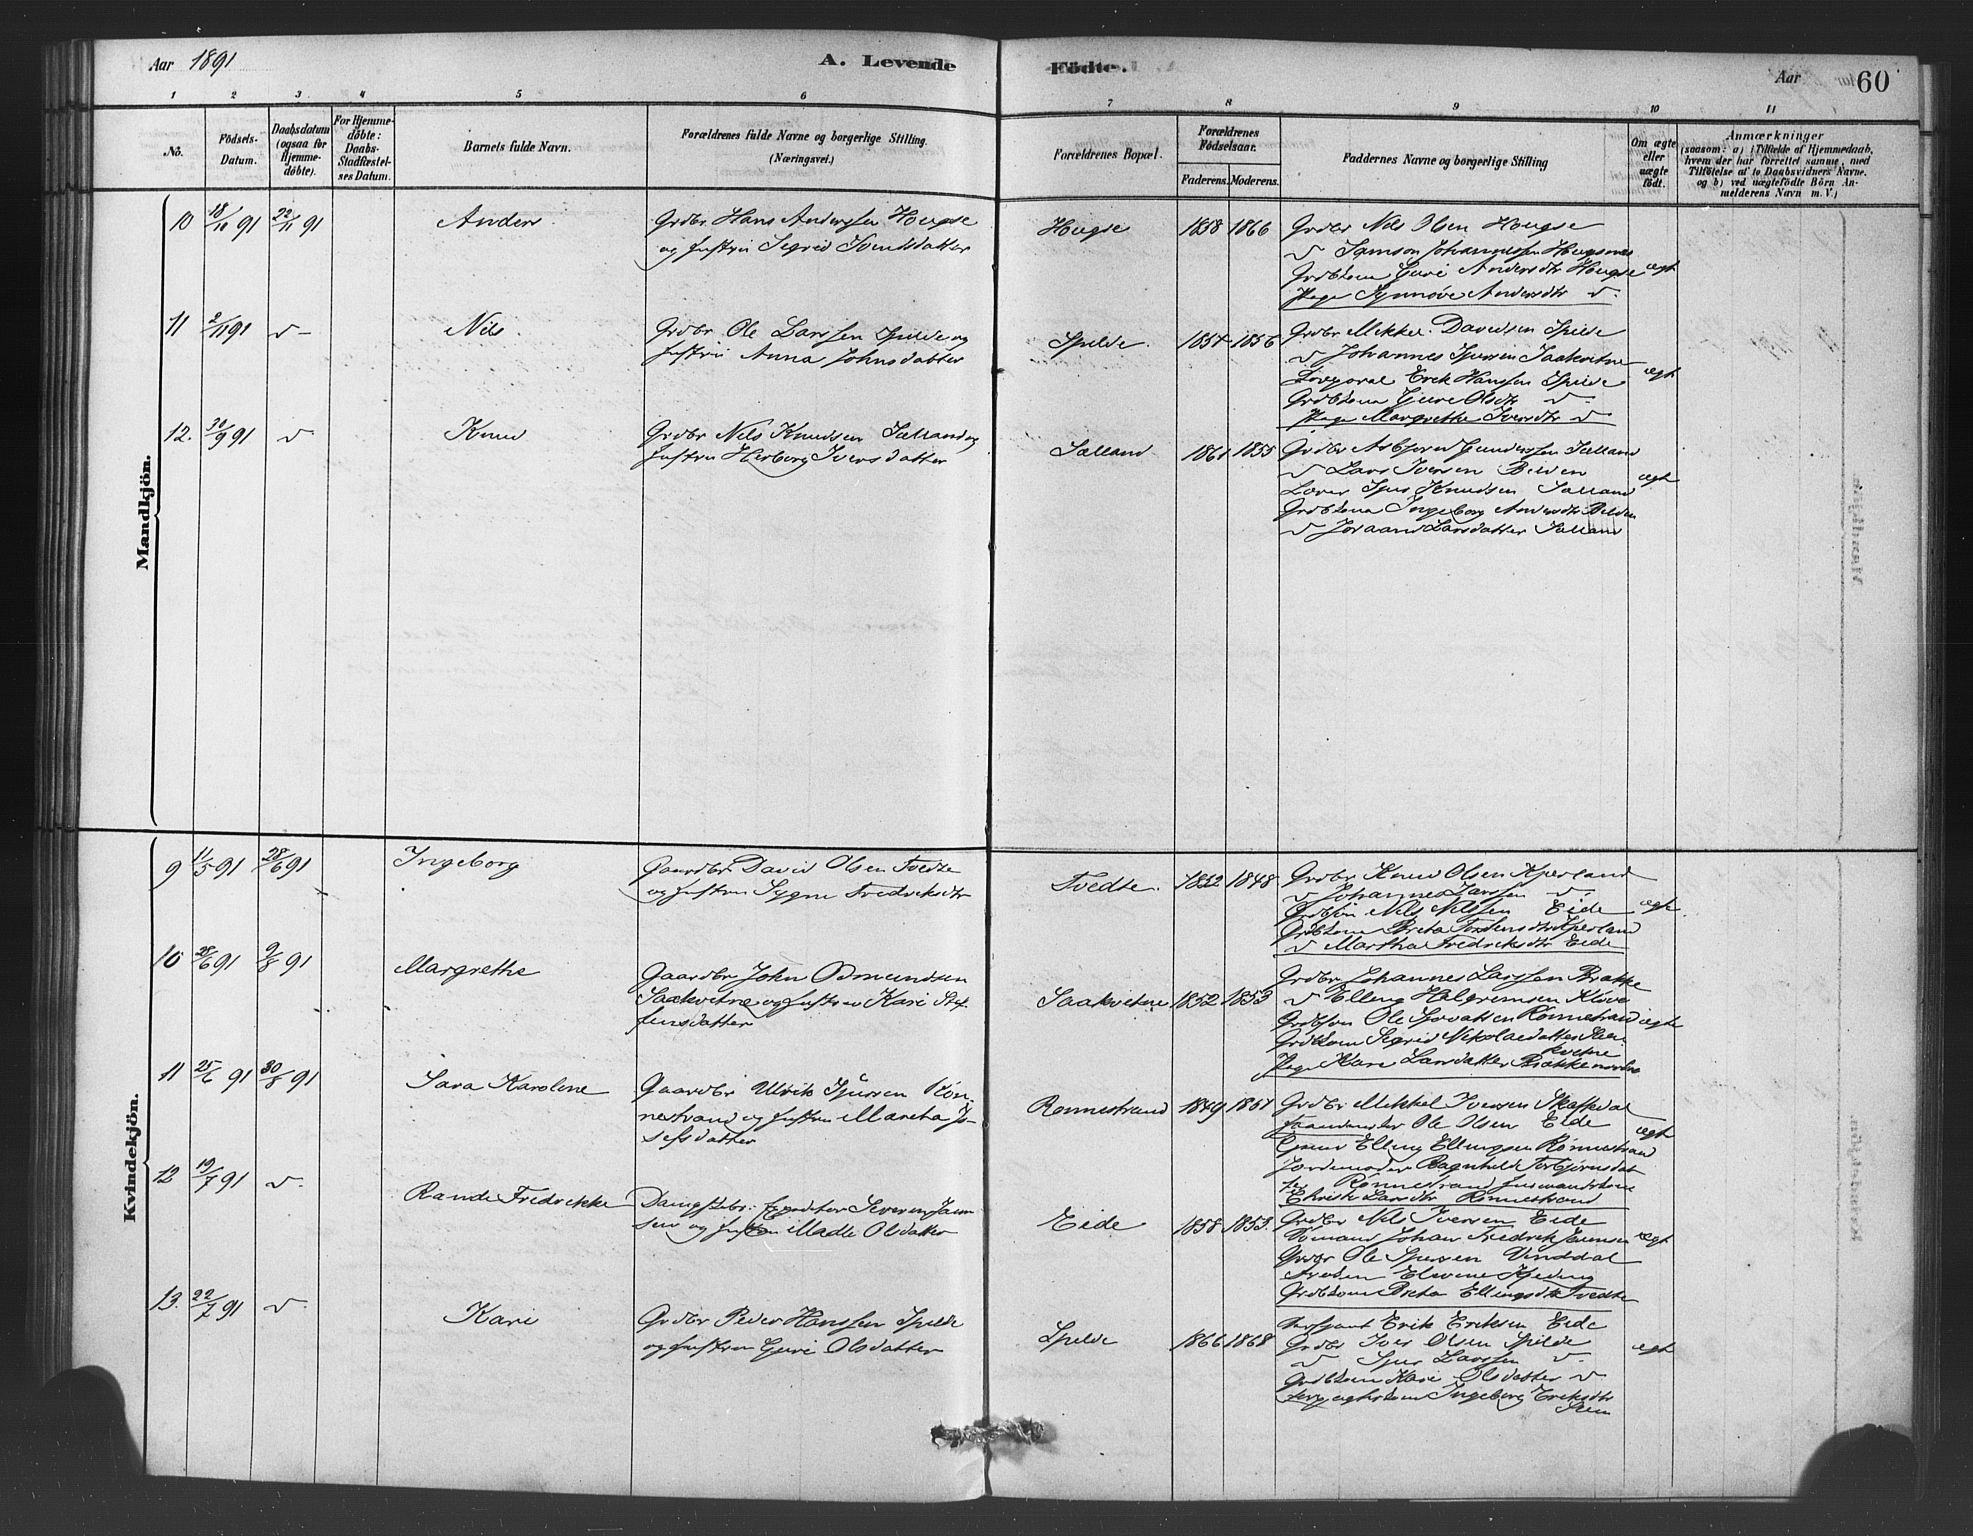 Aar 1891
A. Levende
Födte.
Aar
60
1 2 3 4 5 6 7 8 9 10 11
No.
Födsels-
Datum.
Daabsdatum
(ogsaa for
Hjemme-
døbte).
For Hjemme-
døbte:
Daabs-
Stadfæstel-
ses Datum.
Barnets fulde Navn.
Forældrenes fulde Navne og borgerlige Stilling.
(Næringsvei.)
Forældrenes Bopæl.
Forældrenes
Födselsaar.
Faderens. Moderens.
Faddernes Navne og borgerlige Stilling
Om ægte
eller
uægte
født.
Anmærkninger
(saasom: a) i Tilfælde af Hjemmedaab,
hvem der har forrettet samme, med
Tilföielse af to Daabsvidners Navne.
og b) ved uægtefödte Börn An-
melderens Navn m. V.)
Mandkjön.
10 18/10 91 22/11 91 Anders
Grdbr Hans Anderssen Hougse
og hustru Sigrid Svendsdatter
Hougse 1858 1866
Grdbr Nils Olsen Hougse
v Samson Johannessen Hougsnes
Grdbkone Guri Andersdtr Hougse
Pige Synnøve Andersdtr v.
ægt
11 2/11 91 v Nils
Grdbr Ole Larssen Spilde og
hustru Anna Johnsdatter
Spilde. 1854 1856
Grdbr Mikkel Davidsen Spilde
v Johannes Sjursen Saakvitne
Erik Hanssen Spilde
Grdbkone Guri Olsdtr v.
Pige Margrethe Iversdtr v
ægt
12. 30/9 91 v Knud
Grdbr Nils Knudsen Sælland og
hustru Herborg Iversdatter
Sælland 1861 1855
Grdbr Asbjørn Gunderssen Sælland
v Lars Iversen Bilden
Lærer Sjur Knudsen Sælland
Grdbkone Ingeborg Andersdtr Bilden
v Joraand Larsdatter Sælland
ægt
Kvindekjön.
9 11/5 91 28/6 91 Ingeborg
Gaardbr David Olsen Tvedte
og hustru Sygni Fredriksdtr
Tvedte. 1852 1848
Grdbr Knud Olsen Kjerland
v Johannes Larssen v.
Grdbsøn Nils Nilssen Eide
Grdbkone Brita Torstensdtr Kjerland
v Martha Fredriksdtr Eide
ægt.
10 28/6 91 9/8 91 Margrethe
Gaardbr John Odmundsen
Saakvitne og hustru Kari Stef
fensdatter
Saakvitne 1852 1853
Grdbr Johannes Larssen Brakke
v Elling Halgrimsen Kløve
Grdbsøn Ole Sjovatsen Rønnestrand
Grdbkone Sigrid Nikolaidatter Saa
kvitne
Pige Kari Larsdatter Brakkenordre
ægte
11 25/6 91 30/8 91 Sara Karoline
Gaardbr Ulrik Sjursen Røn
nestrand og hustru Martha Jo-
sefsdatter
Rønnestrand 1849 1851
Grdbr Mikkel Iversen Skeftedal
Ole Olsen Eide
Elling Ellingsen Rønnestrand
Jordemoder Ragnhild Torbjørnsdat
ter Rønnestrand
Larsdtr Rønnestrand
ægt
12 19/7 91 v. Rande Fredrikke
Dampskibs: Expeditør Severin Jam
sen og hustru Madli Olsdatter
Eide 1858 1853.
Grdbr Nils Iversen Eide
Johan Fredrik Jamsen
Grdbr Ole Sjursen Vinddal
Frøken Elevine Kjeding
Grdbkone Brita Ellingsdtr Tvedte
ægt
13. 22/7 91 v. Kari
Grdbr Peder Hanssen Spilde
og hustru Guri Olsdatter
Spilde 1866 1868
Erik Eriksen Eide
Grdbr Iver Olsen Spilde
v Sjur Larssen v.
Grdbkone Kari Olsdatter v
Ingeborg Eriksdtr
ægt